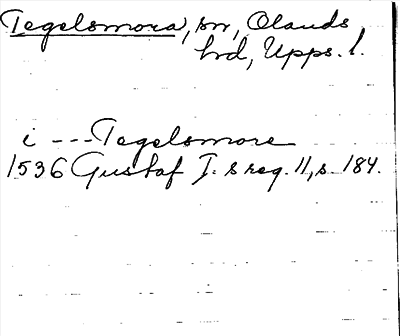 Tegelsmora, sn, Olands
hd, Upps. l.
i --- Tegelsmore
1536 Gustaf I. s reg. 11, s. 184.